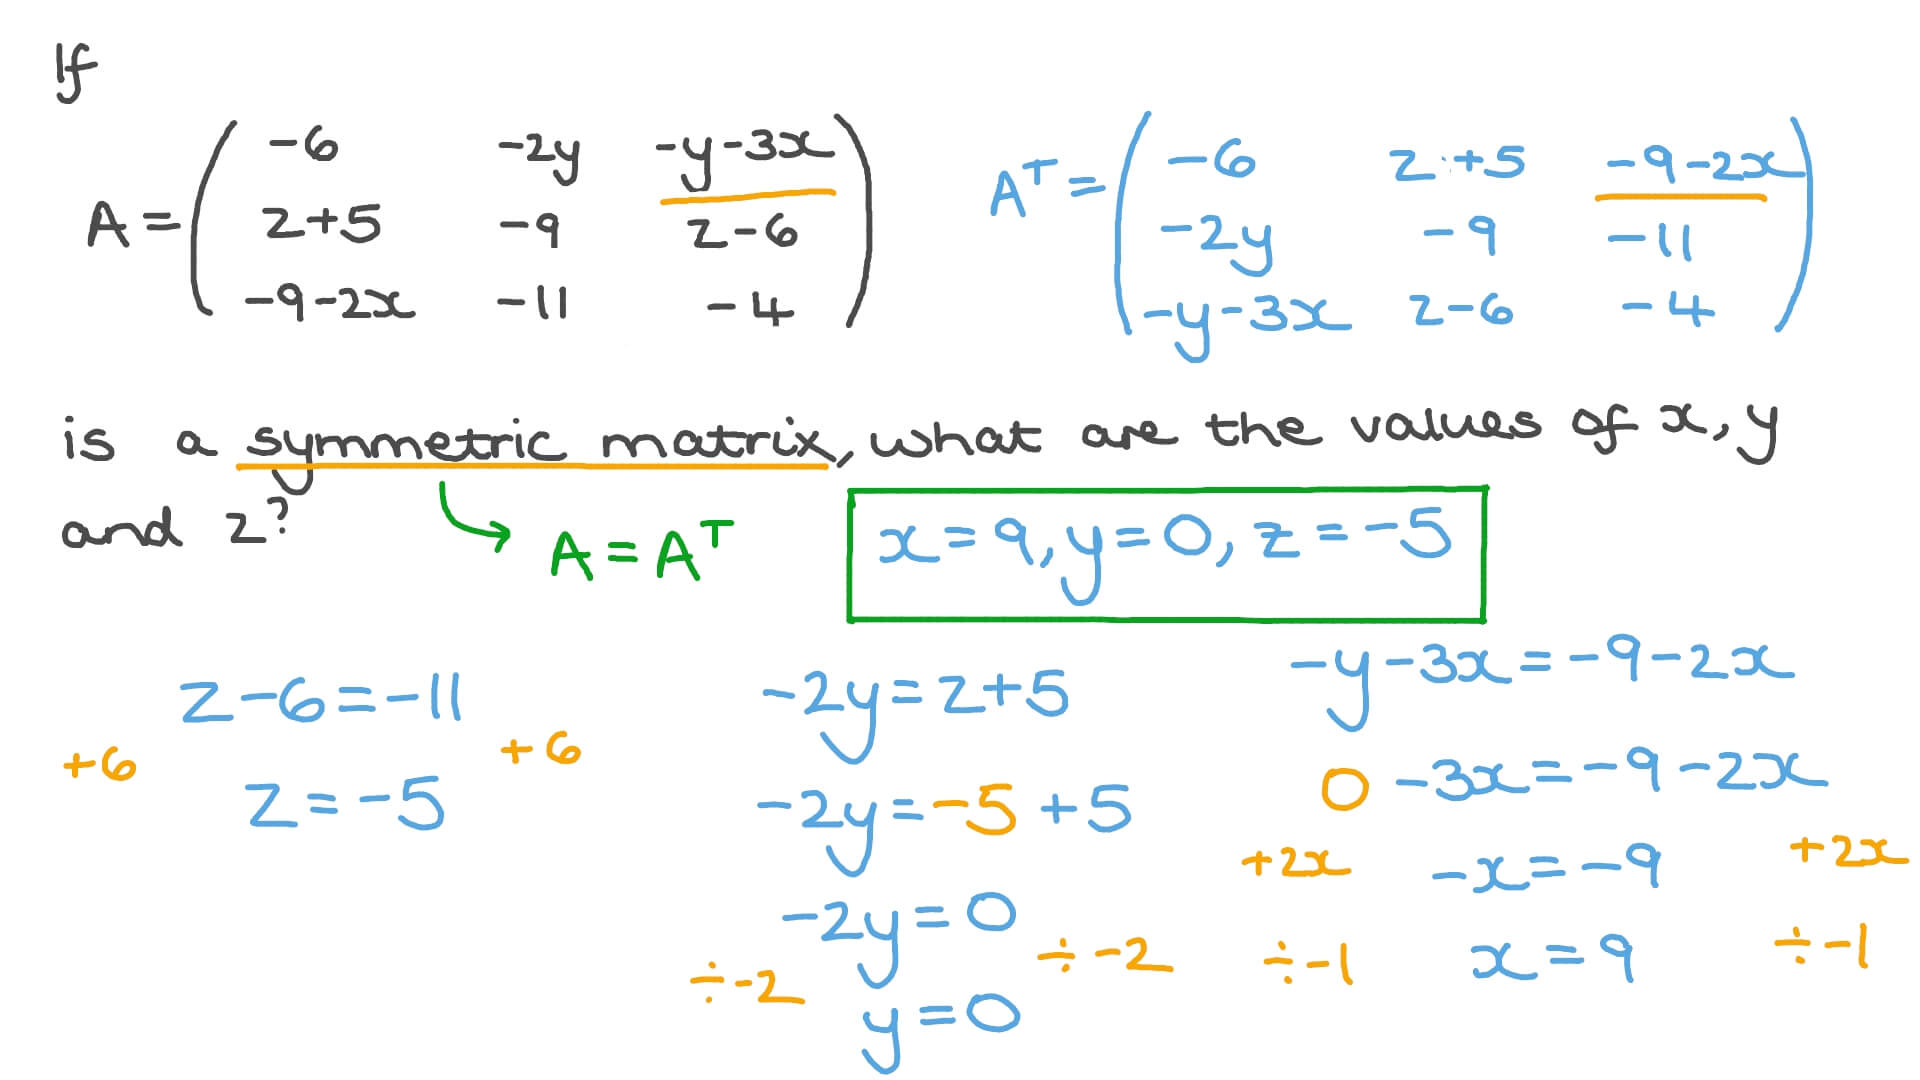 If
A = ( -6 -2y -y-3x
z+5 -9 z-6
-9-2x -11 -4 )
Aᵀ = ( -6 z+5 -9-2x
-2y -9 -11
-y-3x z-6 -4 )
is a symmetric matrix, what are the values of x, y
and z?
→ A = Aᵀ
x = 9, y = 0, z = -5
z-6 = -11
+6 +6
z = -5
-2y = z+5
-2y = -5+5
-2y = 0
÷-2 ÷-2
y = 0
-y-3x = -9-2x
0-3x = -9-2x
+2x -x = -9 +2x
÷-1 x = 9 ÷-1